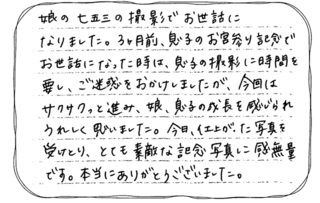 娘の七五三の撮影でお世話に
なりました。3ヶ月前、息子のお宮参り記念で
お世話になった時は、息子の撮影に時間を
要し、ご迷惑をおかけしましたが、今回は
サクサクっと進み、娘、息子の成長を感じられ
うれしく思いました。今日、仕上がった写真を
受けとり、とても素敵な記念写真に感無量
です。本当にありがとうございました。